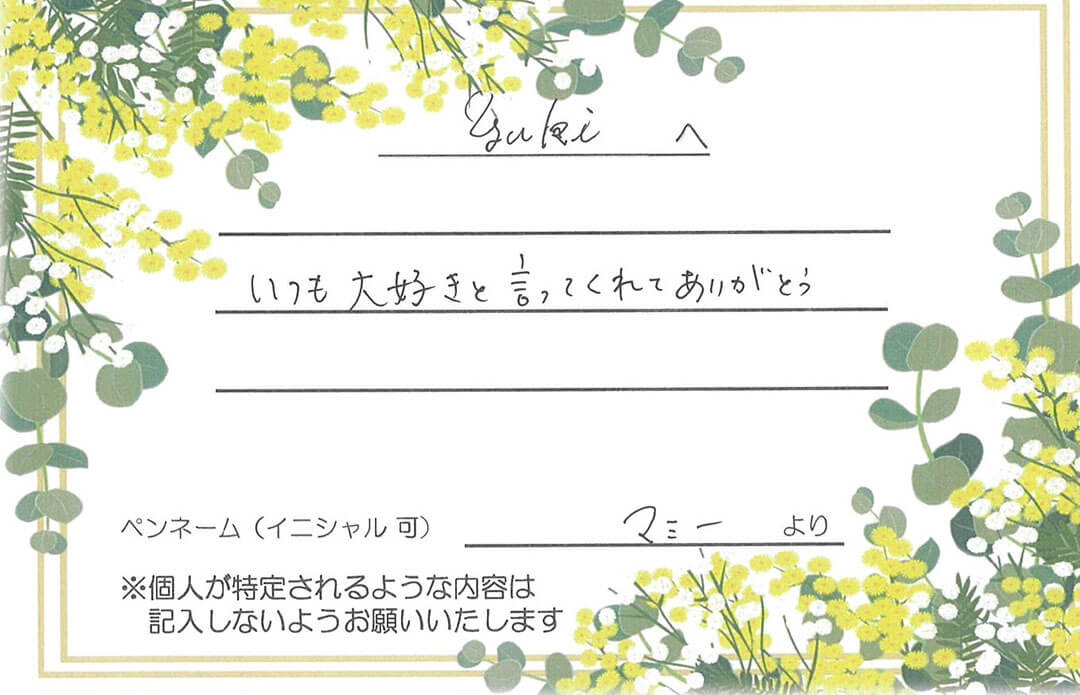 Yuki へ
いつも 大好きと 言ってくれて ありがとう
ペンネーム（イニシャル 可） マミー より
※個人が特定されるような内容は
記入しないようお願いいたします